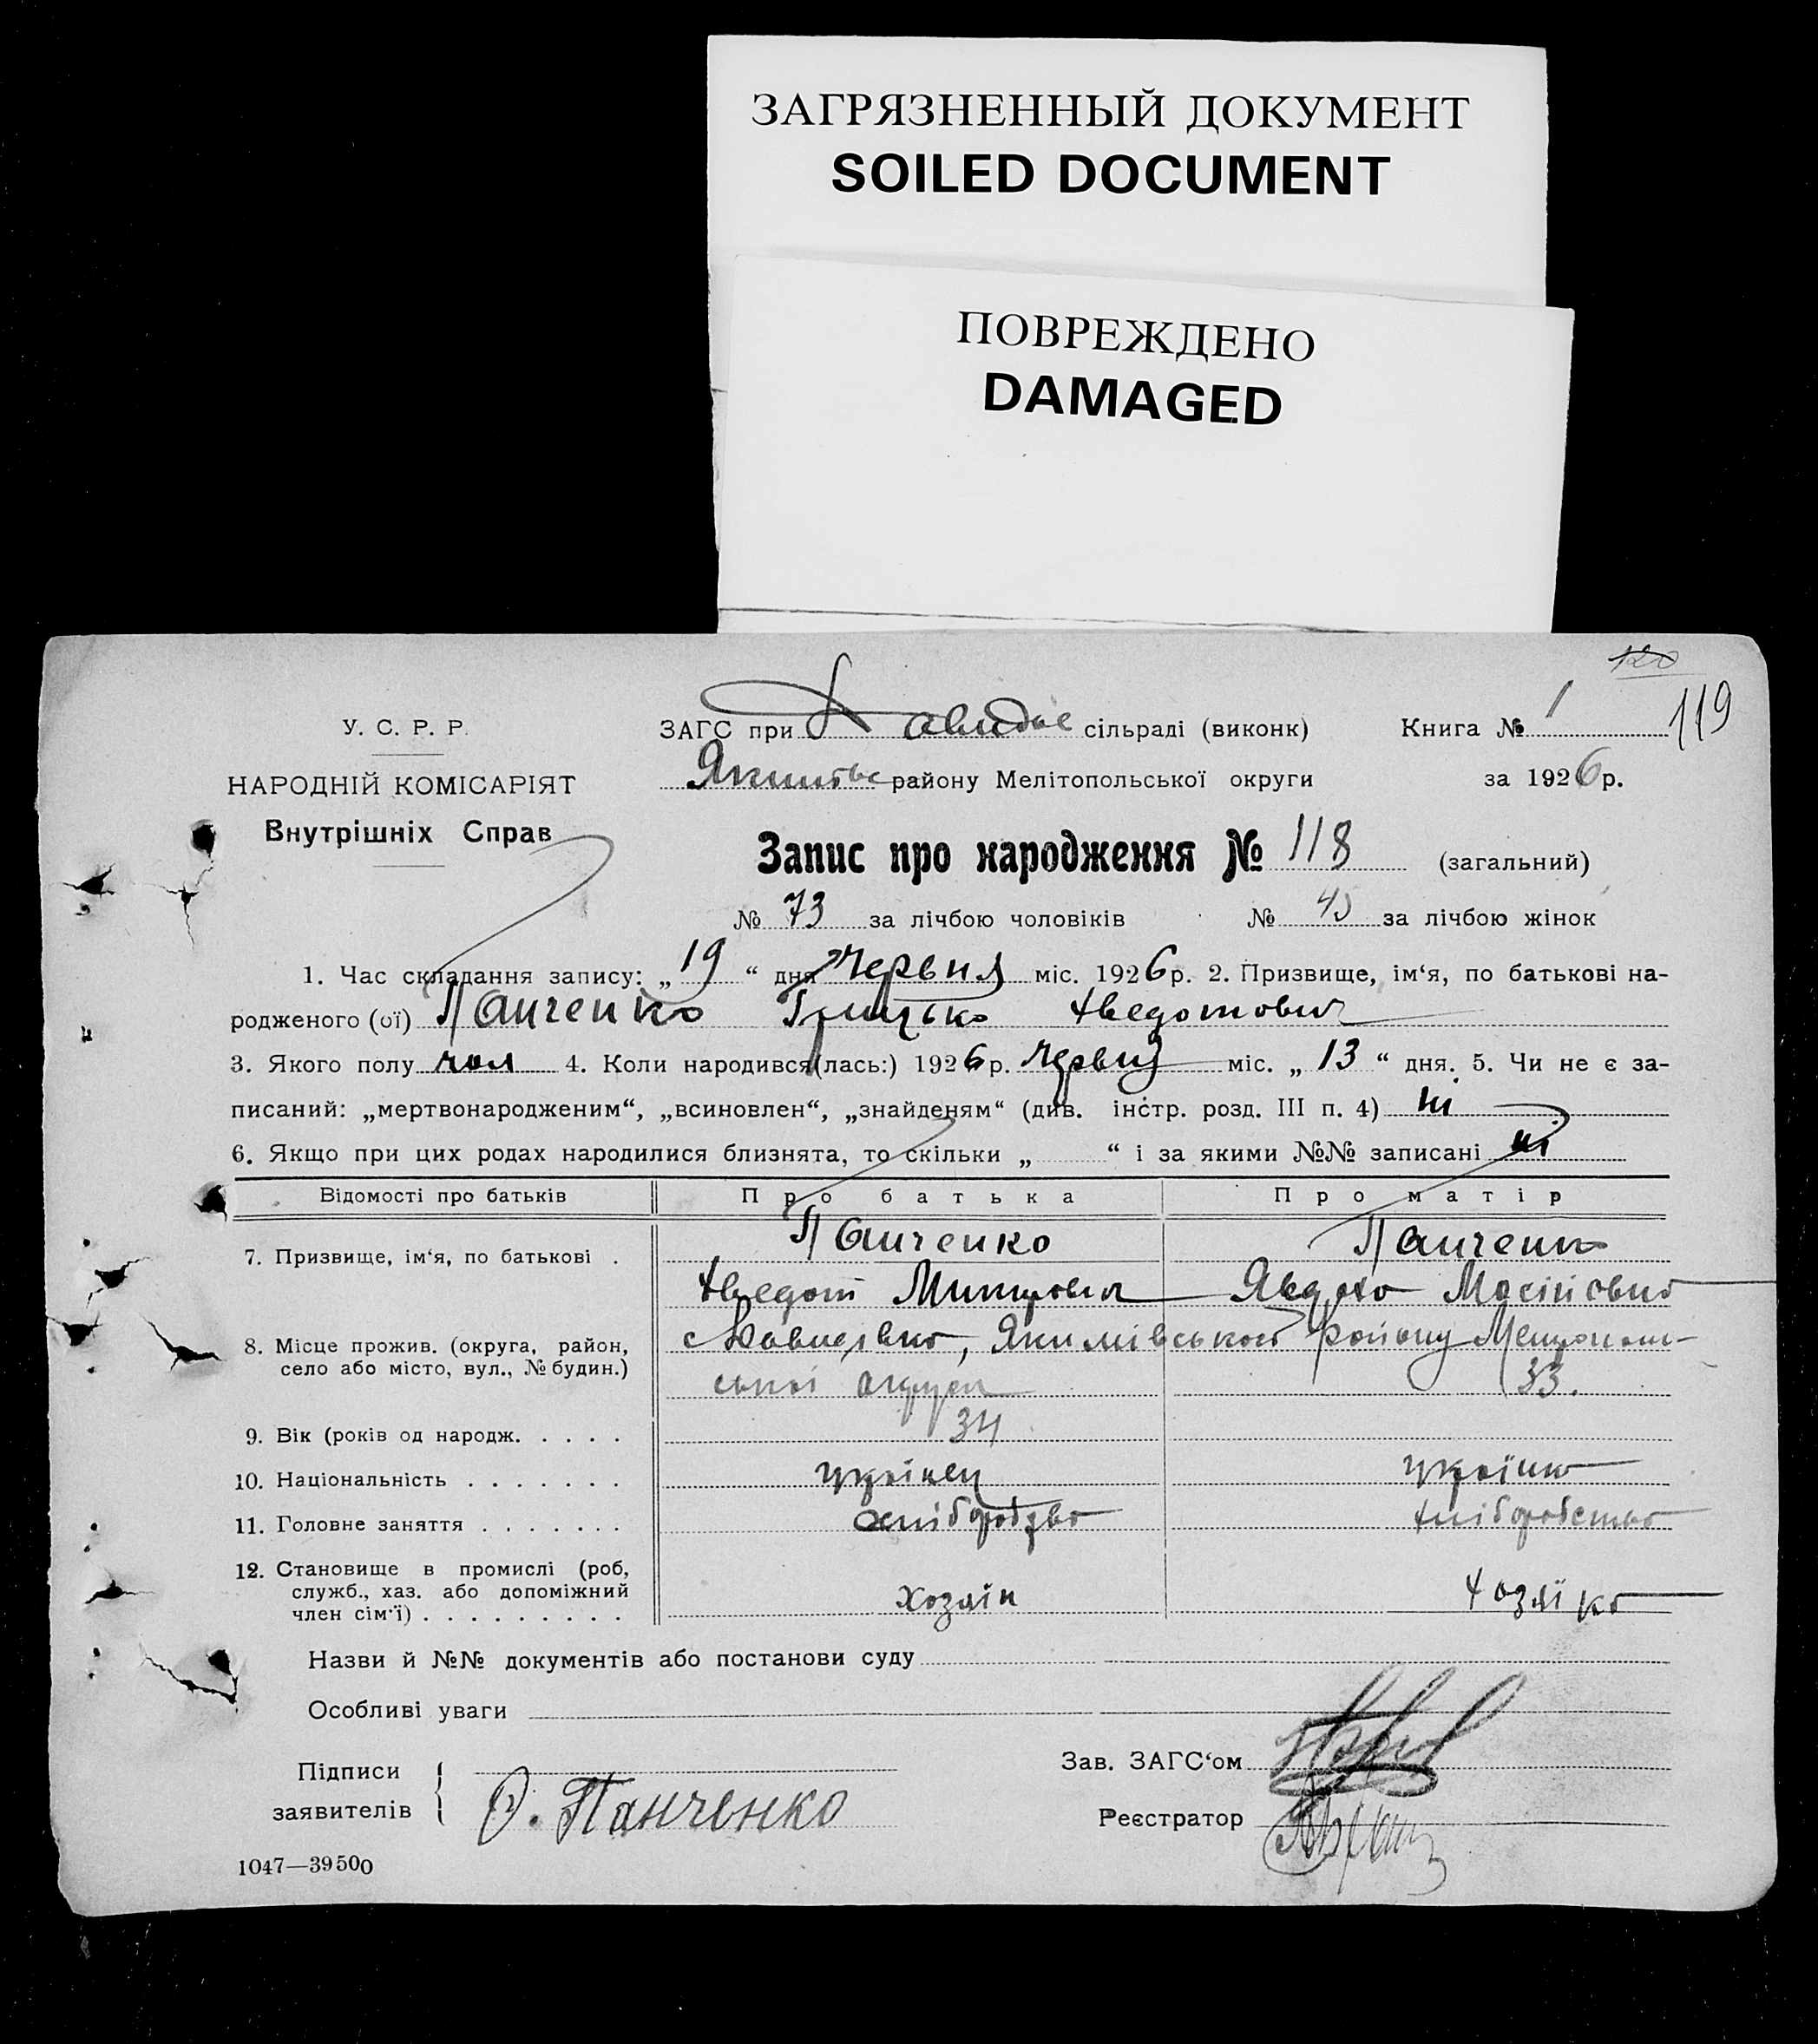 ЗАГРЯЗНЕННЫЙ ДОКУМЕНТ
SOILED DOCUMENT
ПОВРЕЖДЕНО
DAMAGED
120
119
У. С. Р. Р.
НАРОДНІЙ КОМІСАРІЯТ
Внутрішніх Справ
ЗАГС при Давидів сільраді (виконк) Книга № 1
району Мелітопольської округи за 1926 р.
Запис про народження № 118 (загальний)
№ 73 за лічбою чоловіків № 45 за лічбою жінок
1. Час складання запису: „19“ дня Червня міс. 1926 р. 2. Призвище, ім‘я, по батькові на-
родженого (ої) Панченко Грицько Хведотович
3. Якого полу чол 4. Коли народився(лась:) 1926 р. червня міс. „13“ дня. 5. Чи не є за-
писаний: „мертвонародженим“, „всиновлен“, „знайденям“ (див. інстр. розд. III п. 4) ні
6. Якщо при цих родах народилися близнята, то скільки „ “ і за якими №№ записані ні
Відомості про батьків Про батька Про матір
7. Призвище, ім‘я, по батькові . Панченко Панченко
Хведот Явдоха
8. Місце прожив. (округа, район, Якимівського району
село або місто, вул., № будин.) округи 33.
9. Вік (років од народж. . . . . 34
10. Національність . . . . . . . українец українка
11. Головне заняття . . . . . . . хліборобство
12. Становище в промислі (роб,
служб., хаз. або допоміжний
член сім‘ї) . . . . . . . . . Хозяїн хозяїка
Назви й №№ документів або постанови суду
Особливі уваги
Підписи
заявителів Ф. Панченко
Зав. ЗАГС‘ом
Реєстратор
1047—39500